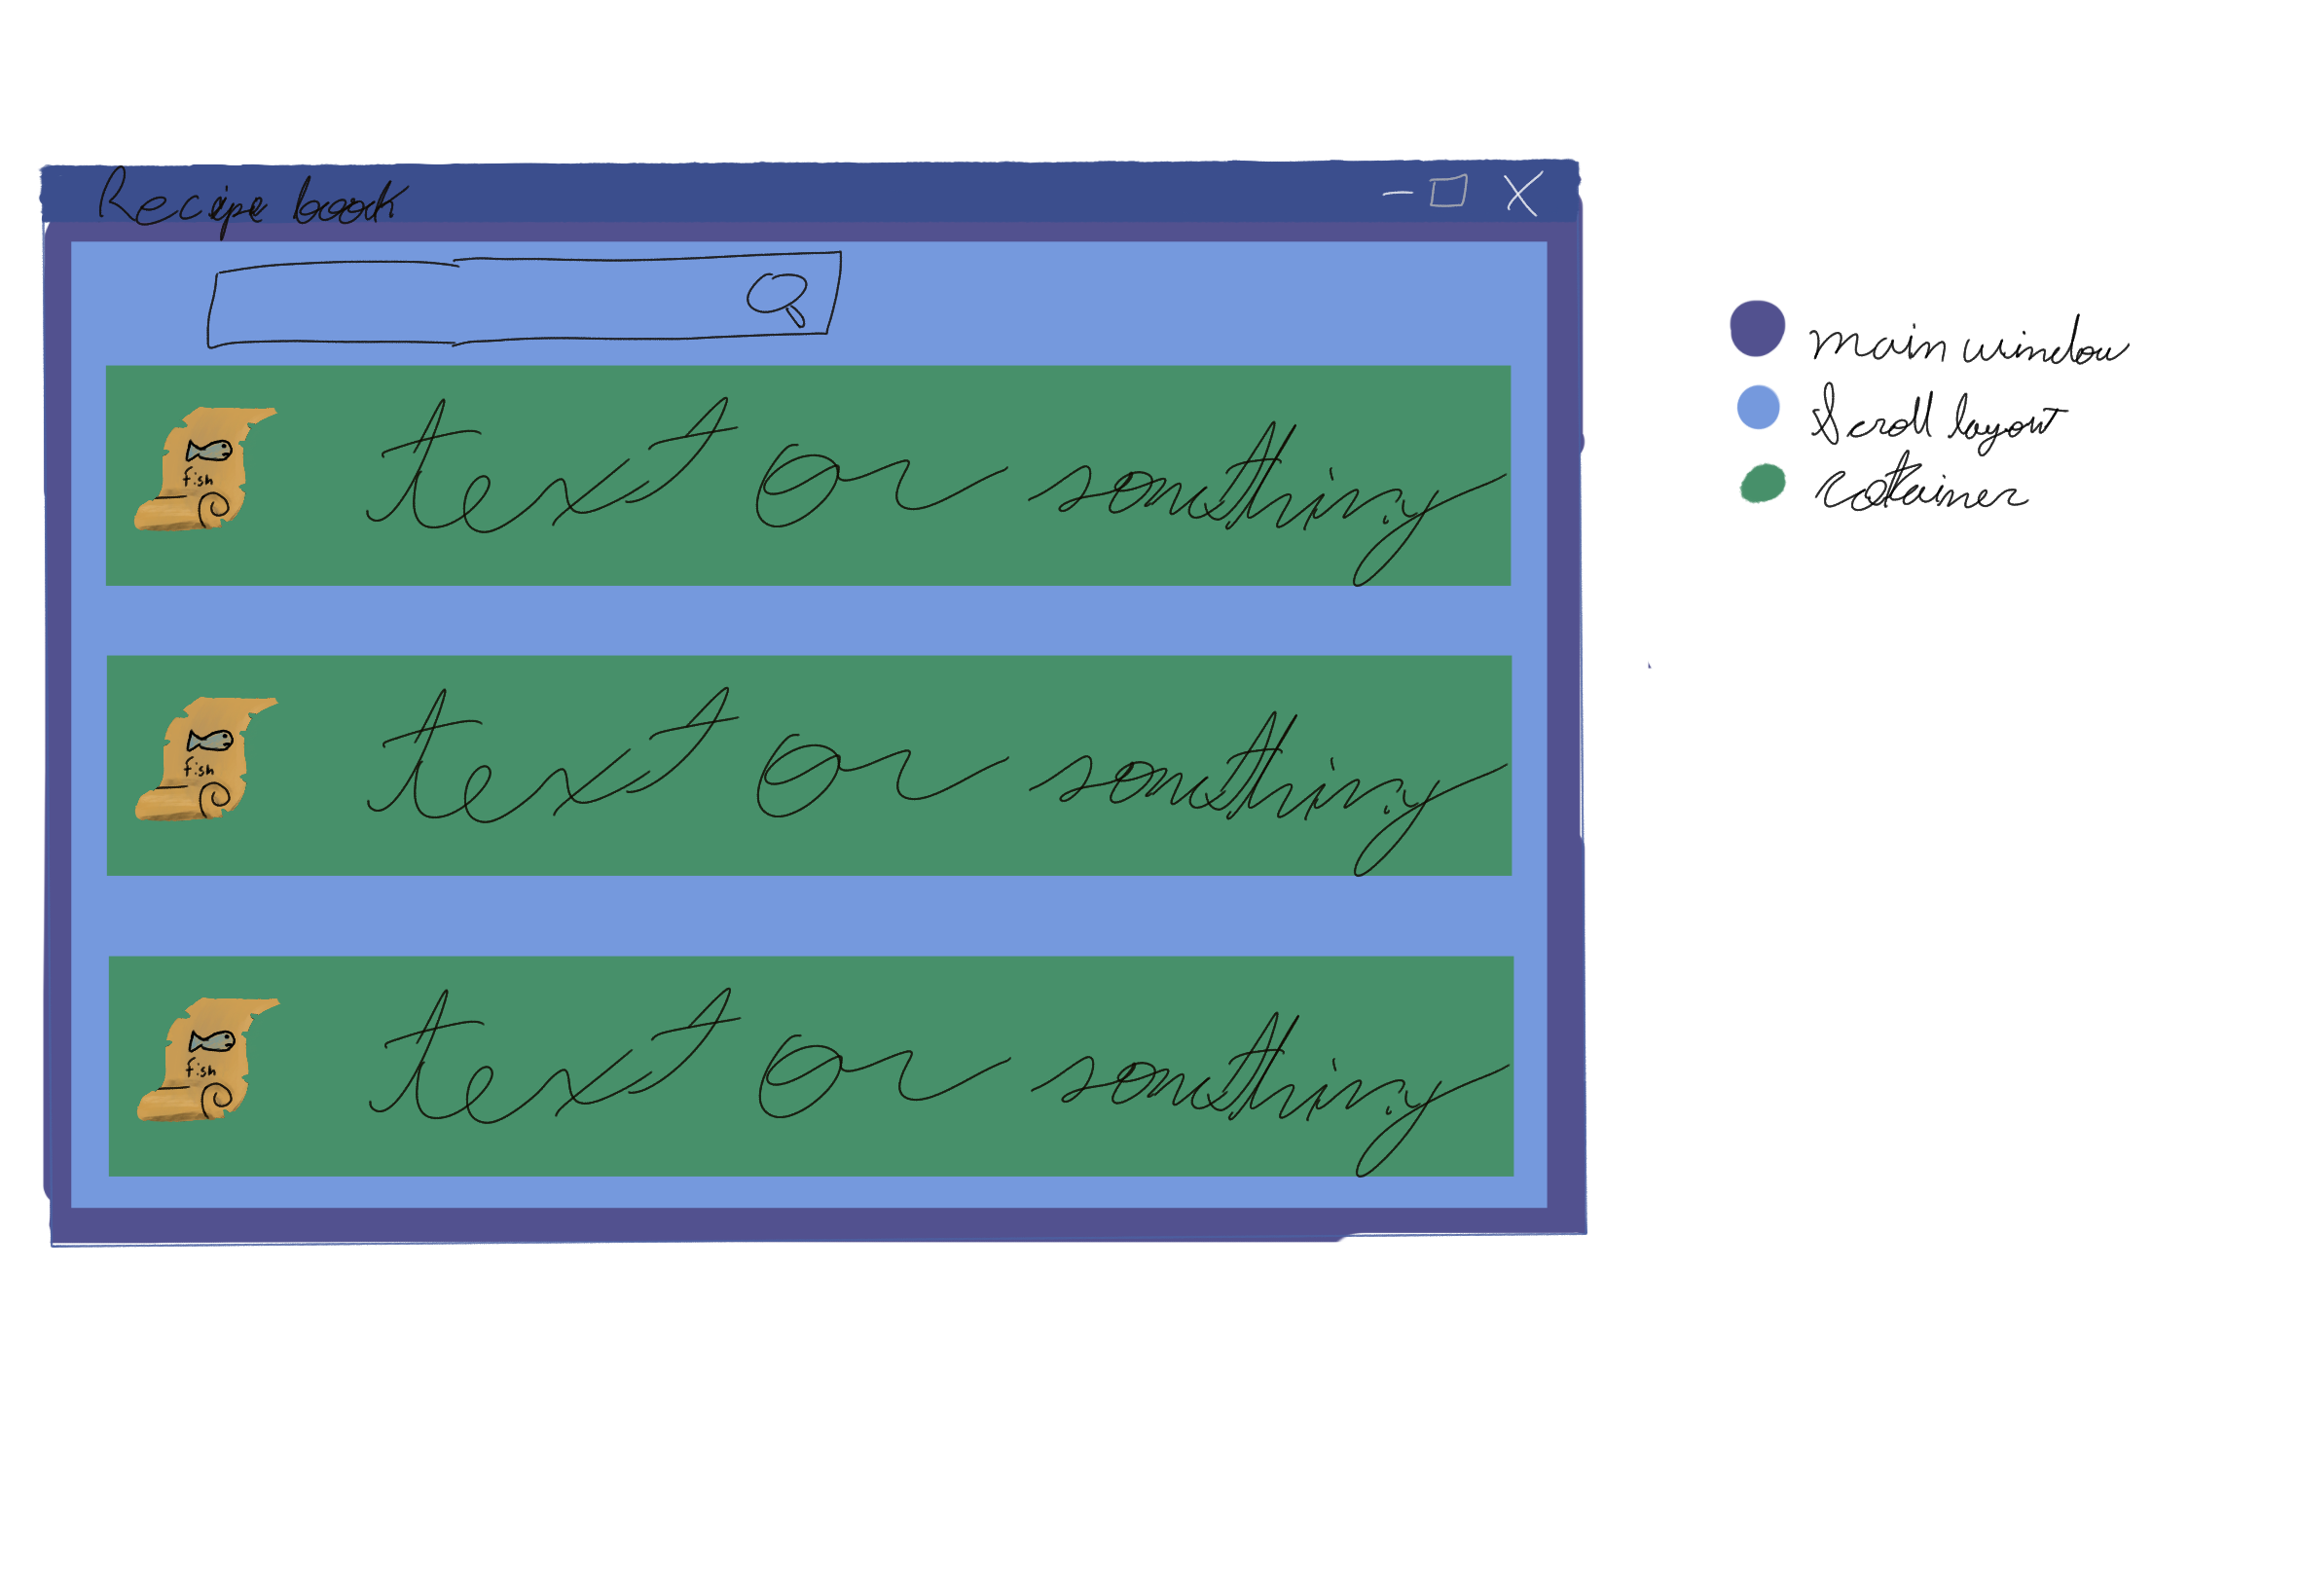 Recipe book
text or somthing
fish
text or somthing
fish
text or somthing
fish
main window
Scroll layout
cotainer